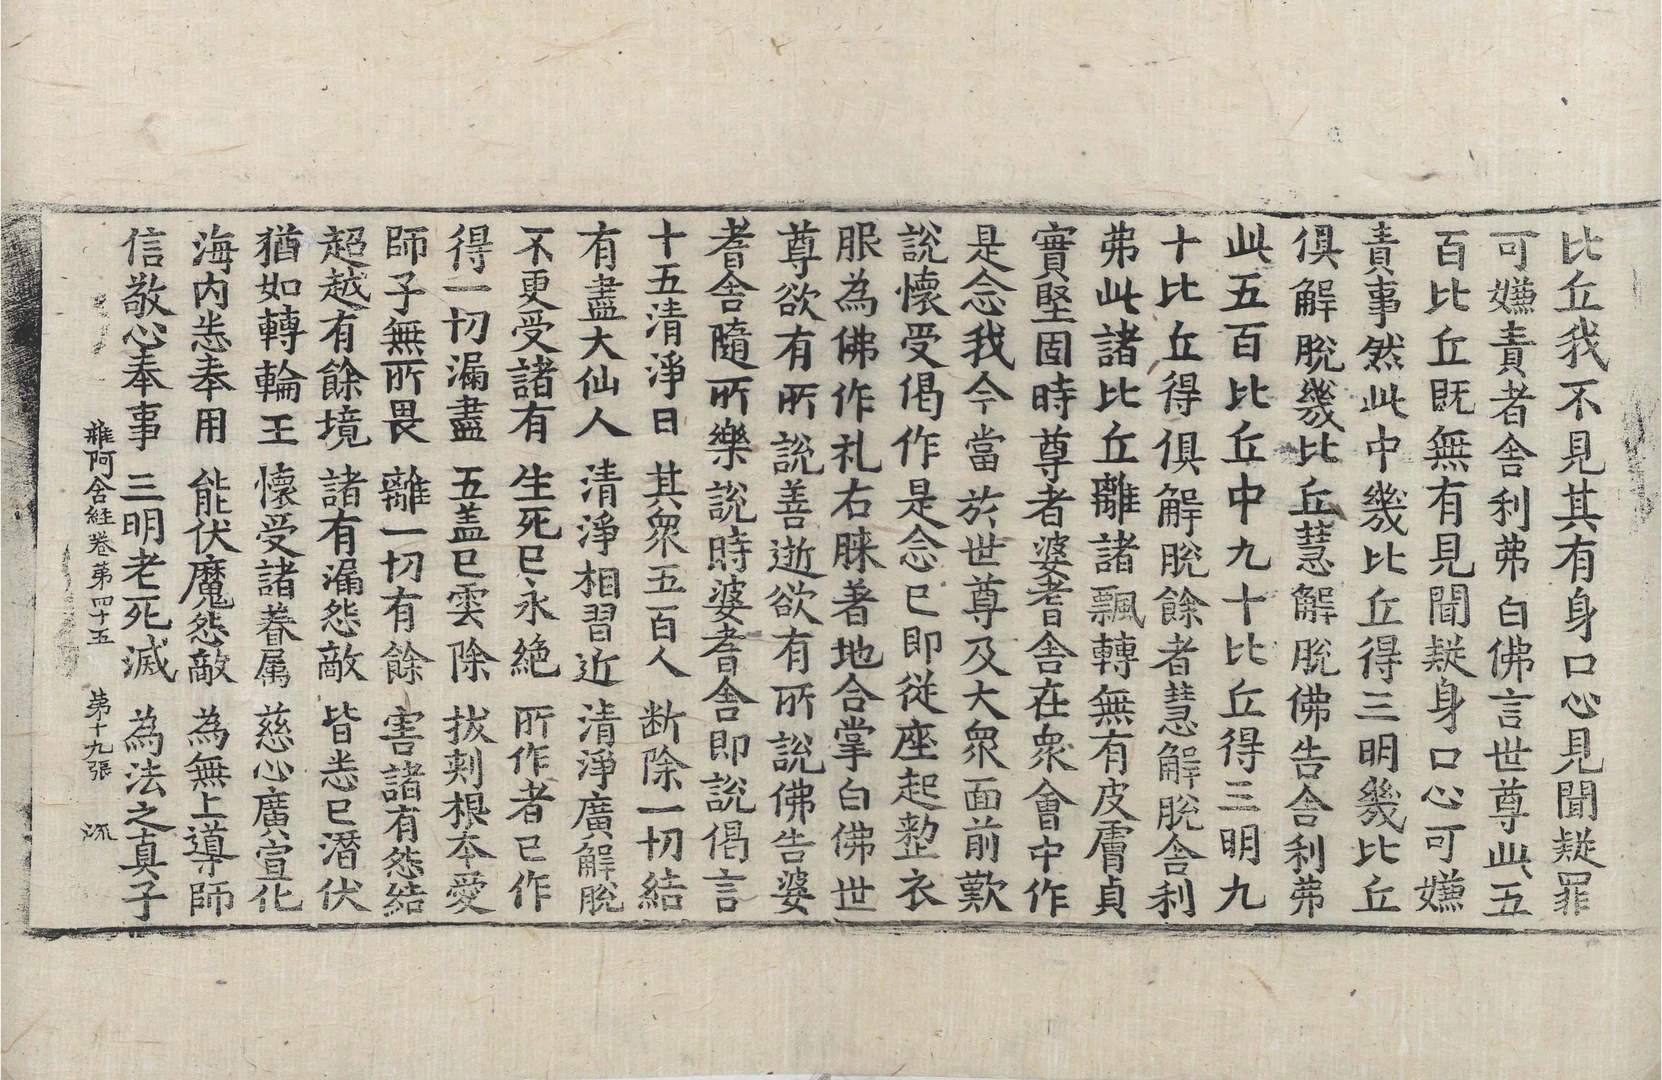 比丘我不見其有身口心見聞疑罪
可嫌責者舍利弗白佛言世尊此五
百比丘既無有見聞疑身口心可嫌
責事然此中幾比丘得三明幾比丘
俱解脫幾比丘慧解脫佛告舍利弗
此五百比丘中九十比丘得三明九
十比丘得俱解脫餘者慧解脫舍利
弗此諸比丘離諸飄轉無有皮膚貞
實堅固時尊者婆耆舍在衆會中作
是念我今當於世尊及大衆面前歎
說懷受偈作是念已即從座起整衣
服為佛作礼右膝著地合掌白佛世
尊欲有所說善逝欲有所說佛告婆
耆舍隨所樂說時婆耆舍即說偈言
十五清淨日 其衆五百人 断除一切結
有盡大仙人 清淨相習近 清淨廣解脫
不更受諸有 生死已永絕 所作者已作
得一切漏盡 五盖已雲除 拔刺根本愛
師子無所畏 離一切有餘 害諸有怨結
超越有餘境 諸有漏怨敵 皆悉已潛伏
猶如轉輪王 懷受諸眷属 慈心廣宣化
海内悉奉用 能伏魔怨敵 為無上導師
信敬心奉事 三明老死滅 為法之真子
雜阿含経卷第四十五 第十九張 流